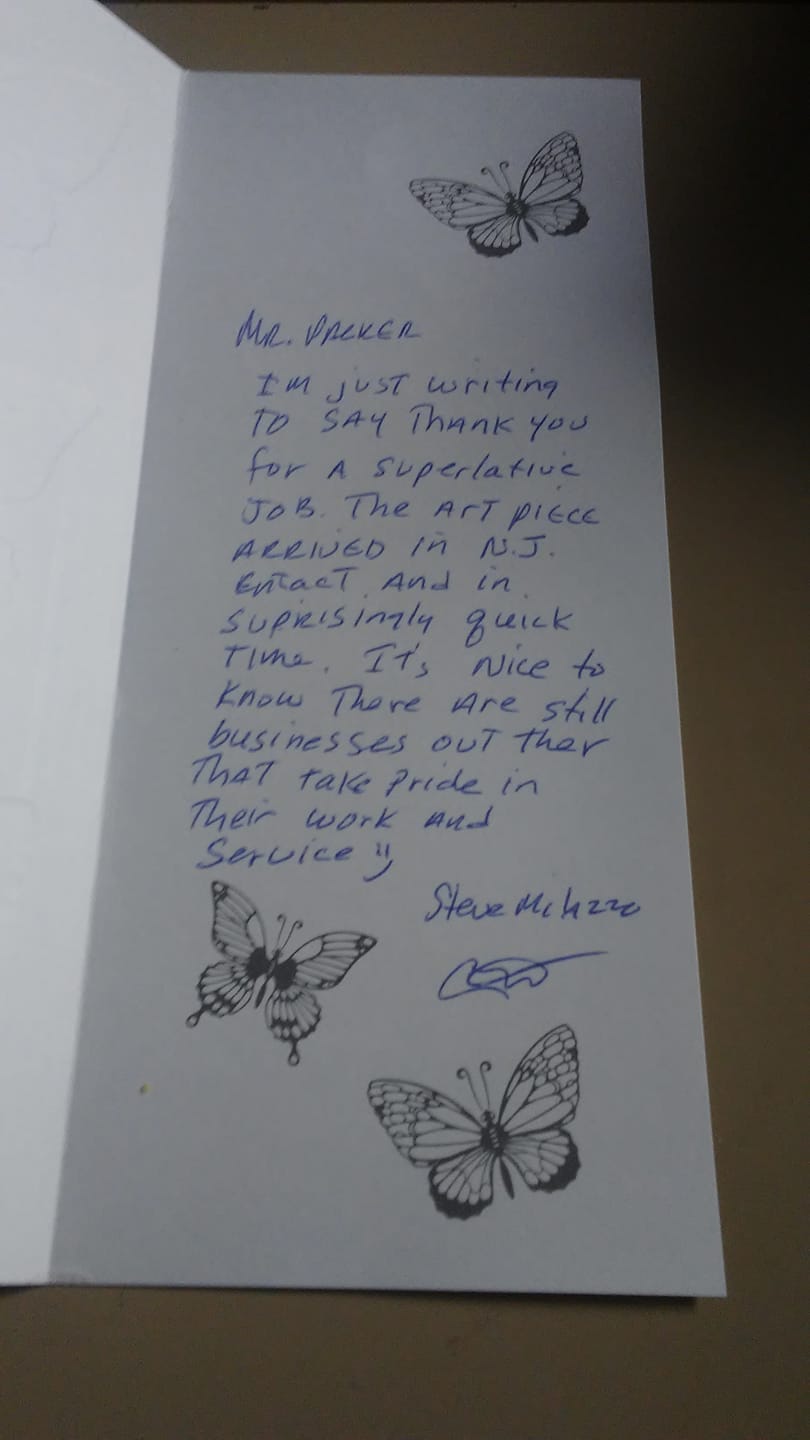 MR. PACKER
I'M just writing
TO SAY Thank you
for A superlative
JOB. The ART PIECE
ARRIVED in N.J.
Entact And in
suprisingly quick
Time. It's Nice to
Know There Are still
businesses out ther
THAT take Pride in
Their work And
Service :)
Steve